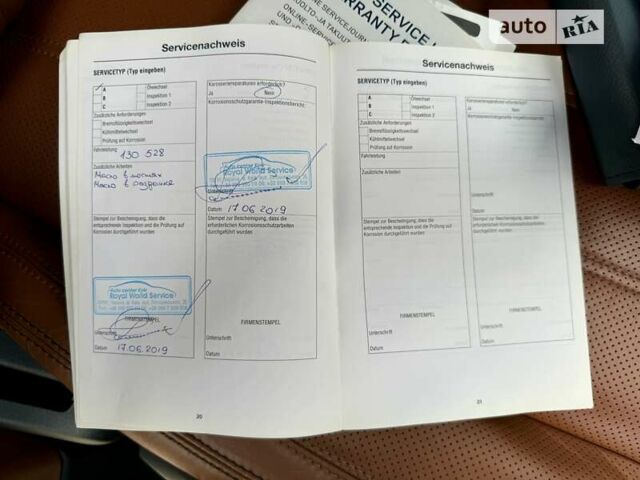 SERVICE
WARRANTY
auto RIA
Servicenachweis
SERVICETYP (Typ eingeben)
A Ölwechsel
B Inspektion 1
C Inspektion 2
Zusätzliche Anforderungen
Bremsflüssigkeitswechsel
Kühlmittelwechsel
Prüfung auf Korrosion
Fahrleistung
130 528
Zusätzliche Arbeiten
Масло в
Масло в
Stempel zur Bescheinigung, dass die
entsprechende Inspektion und die Prüfung auf
Korrosion durchgeführt wurden
Auto center Kyiv
Royal World Service
FIRMENSTEMPEL
Unterschrift
Datum 17.06.2019
20
Karosseriereparaturen erforderlich?
Ja Nein
Korrosionsschutzgarantie-Inspektionsbericht:
Auto center Kyiv
Royal World Service
Datum 17.06.2019
Stempel zur Bescheinigung, dass die
erforderlichen Korrosionsschutzarbeiten
durchgeführt wurden
FIRMENSTEMPEL
Unterschrift
Datum
Servicenachweis
SERVICETYP (Typ eingeben)
A Ölwechsel
B Inspektion 1
C Inspektion 2
Zusätzliche Anforderungen
Bremsflüssigkeitswechsel
Kühlmittelwechsel
Prüfung auf Korrosion
Fahrleistung
Zusätzliche Arbeiten
Stempel zur Bescheinigung, dass die
entsprechende Inspektion und die Prüfung auf
Korrosion durchgeführt wurden
FIRMENSTEMPEL
Unterschrift
Datum
Karosseriereparaturen erforderlich?
Ja Nein
Korrosionsschutzgarantie-Inspektionsbericht:
Unterschrift
Datum
Stempel zur Bescheinigung, dass die
erforderlichen Korrosionsschutzarbeiten
durchgeführt wurden
FIRMENSTEMPEL
Unterschrift
Datum
21